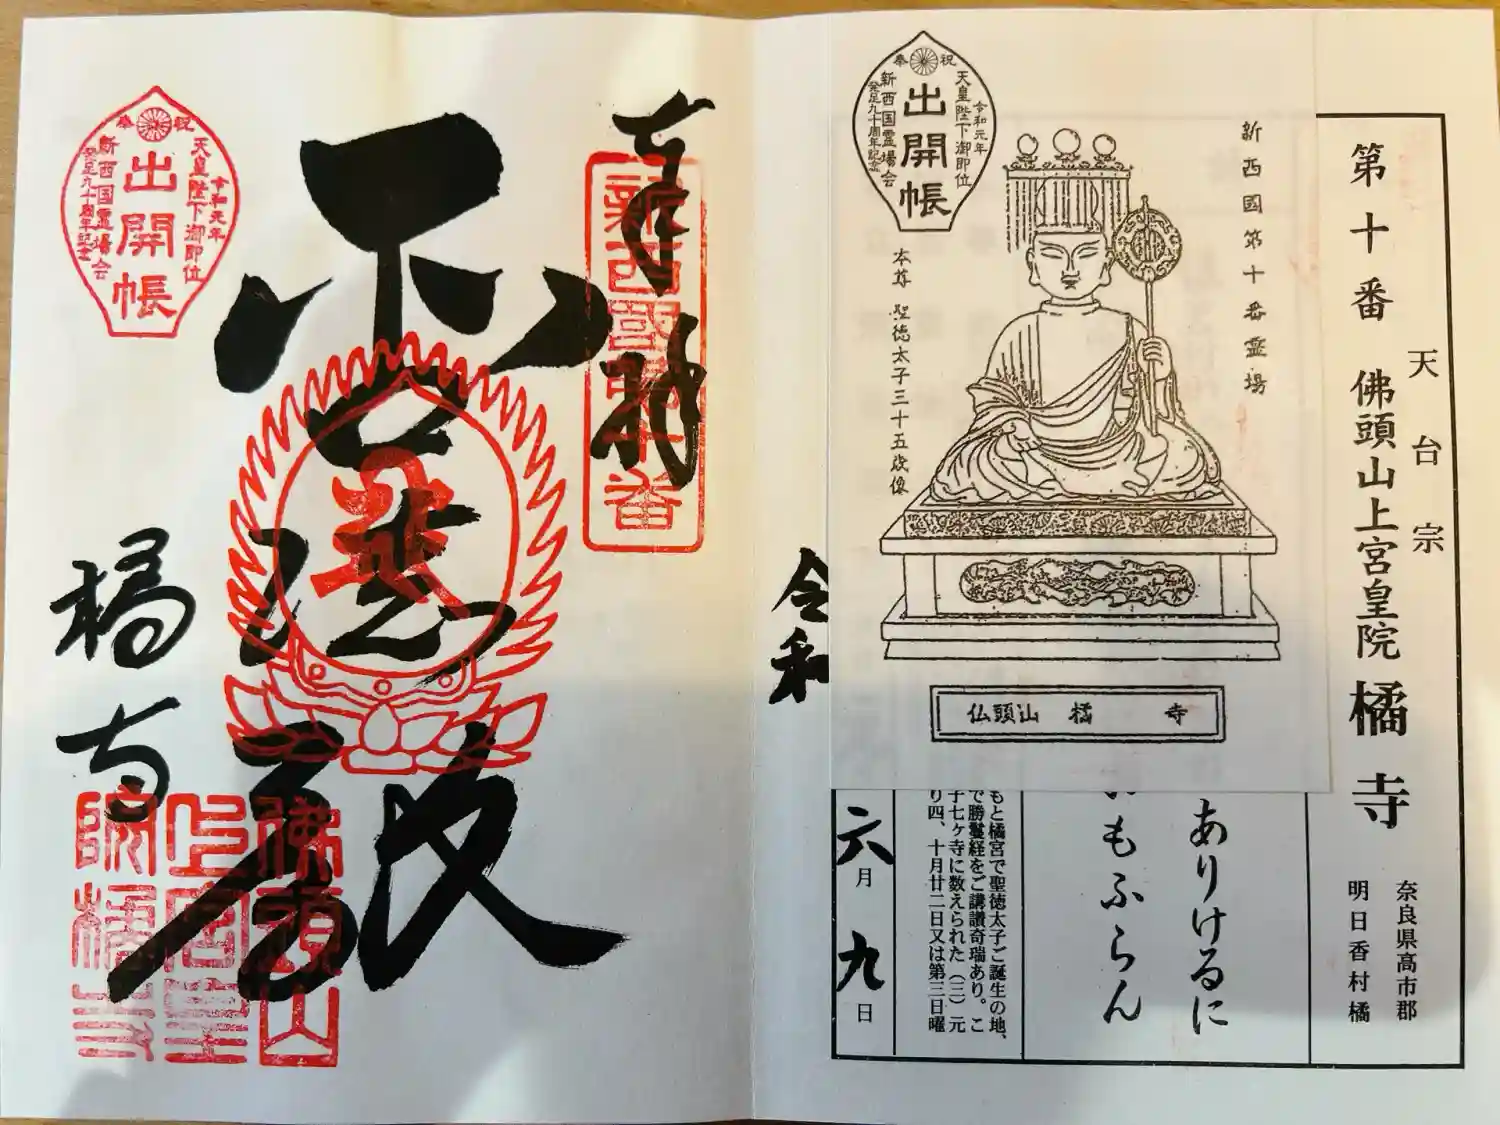 第十番 佛頭山上宮皇院 橘寺
天台宗
奈良県高市郡
明日香村橘
新西國第十番霊場
祝
奉
令和元年
天皇陛下御即位
出開帳
新西国霊場会
発足九十周年記念
本尊 聖徳太子三十五歳像
仏頭山 橘寺
ありけるに
もふらん
もと橘宮で聖徳太子ご誕生の地、
で勝鬘経をご講讃奇瑞あり。こ
子七ヶ寺に数えられた（三）元
り四、十月廿二日又は第三日曜
令和
六月九日
奉拝
新西國第十番
祝
奉
令和元年
天皇陛下御即位
出開帳
新西国霊場会
発足九十周年記念
橘寺
佛頭山
上宮皇
院橘寺